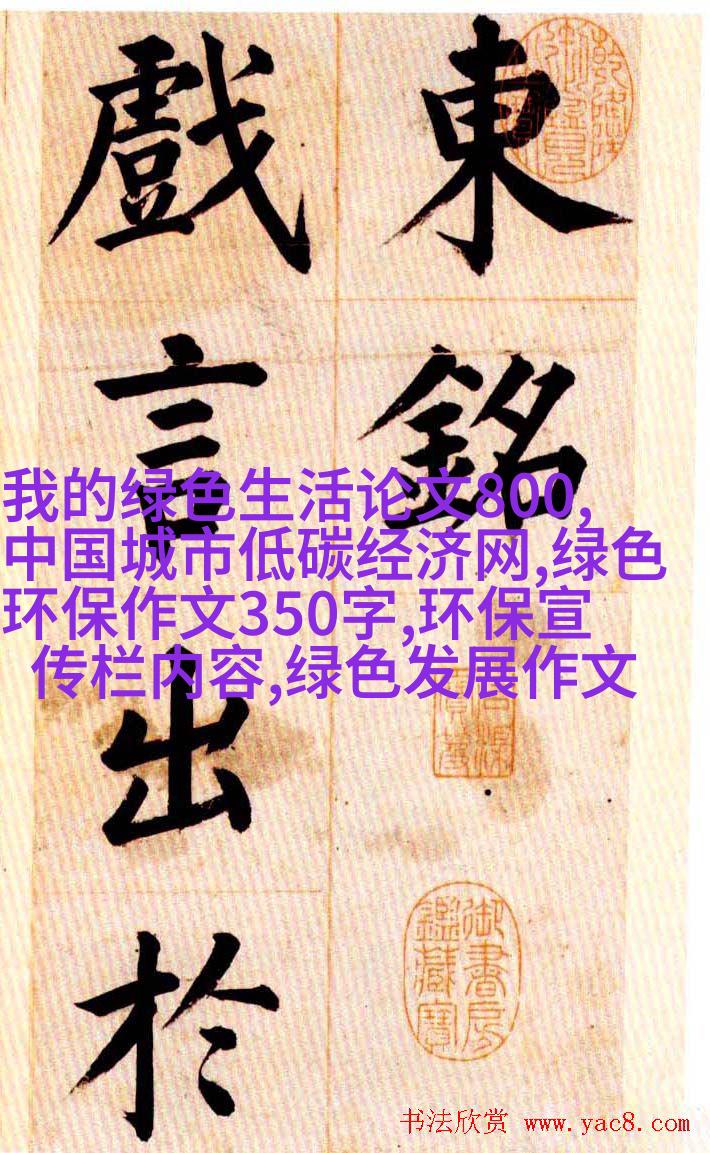 東銘
戲言出於
我的绿色生活论文800,
中国城市低碳经济网,绿色
环保作文350字,环保宣
传栏内容,绿色发展作文
御書房
鑑藏寶
书法欣赏 www.yac8.com